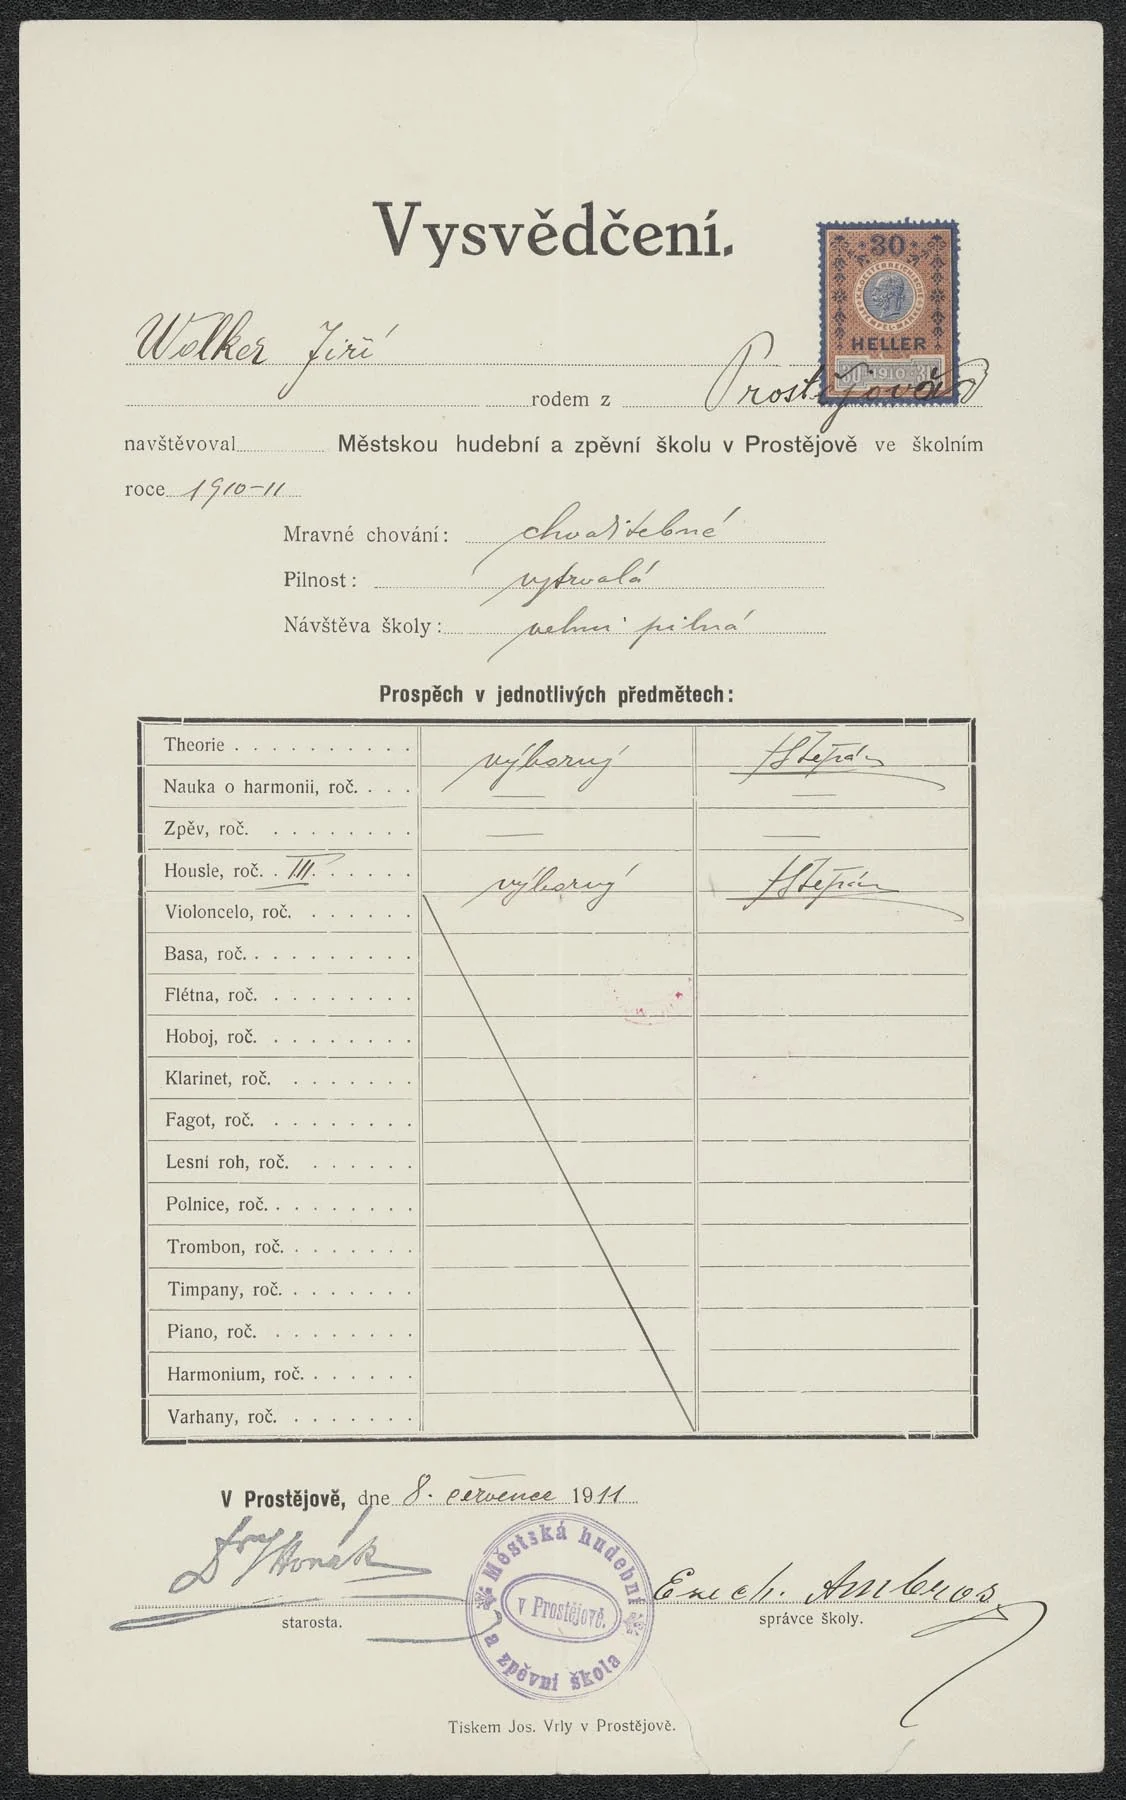 Vysvědčení.
30
K.K. OESTERREICHISCHE STEMPEL-MARKE
HELLER
30 1910 30
Wolker Jiří
rodem z Prostějova
navštěvoval Městskou hudební a zpěvní školu v Prostějově ve školním
roce 1910-11
Mravné chování: chvalitebné
Pilnost: vytrvalá
Návštěva školy: velmi pilná
Prospěch v jednotlivých předmětech:
Theorie . . . . . . . . . . výborný HŠtěpán
Nauka o harmonii, roč. . . . — —
Zpěv, roč. . . . . . . . . — —
Housle, roč. . III. . . . . . výborný HŠtěpán
Violoncelo, roč. . . . . . .
Basa, roč. . . . . . . . . .
Flétna, roč. . . . . . . . .
Hoboj, roč. . . . . . . . .
Klarinet, roč. . . . . . . .
Fagot, roč. . . . . . . . .
Lesní roh, roč. . . . . . .
Polnice, roč. . . . . . . . .
Trombon, roč. . . . . . . .
Timpany, roč. . . . . . . .
Piano, roč. . . . . . . . .
Harmonium, roč. . . . . . .
Varhany, roč. . . . . . . .
V Prostějově, dne 8. července 1911
Horák
Ezech. Ambros
starosta.
správce školy.
Městská hudební
v Prostějově.
a zpěvní škola
Tiskem Jos. Vrly v Prostějově.